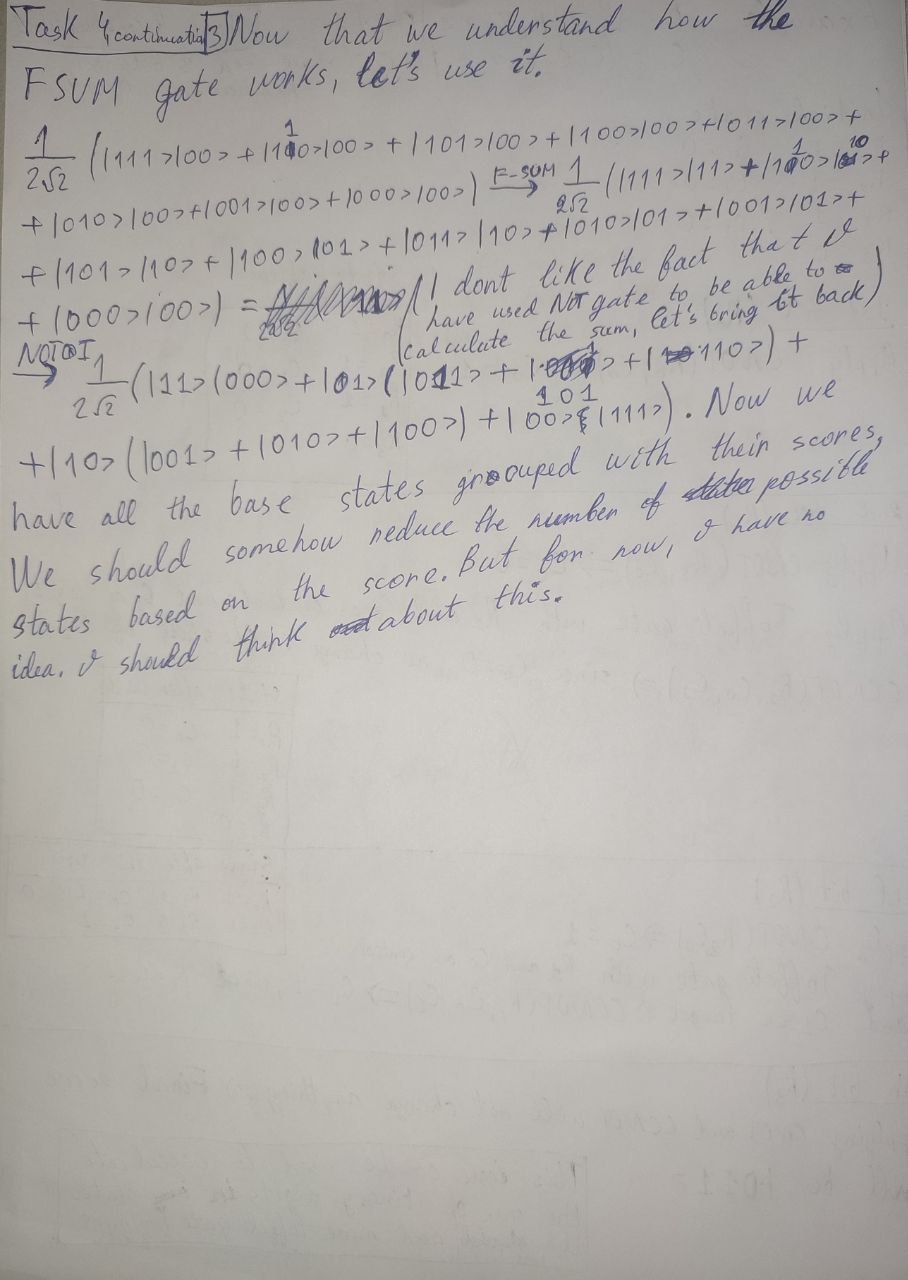 Task 4, continuation 3) Now that we understand how the
FSUM gate works, let's use it.
1/2√2 (|111>|00> + |110>|00> + |101>|00> + |100>|00> + |011>|00> +
+ |010>|00> + |001>|00> + |000>|00>) F-SUM → 1/2√2 (|111>|11> + |110>|10> +
+ |101>|10> + |100>|01> + |011>|10> + |010>|01> + |001>|01> +
+ |000>|00>) = (I dont like the fact that I
have used NOT gate to be able to
calculate the sum, let's bring it back)
NOT⊗I → 1/2√2 (|11>|000> + |01>(|011> + |101> + |110>) +
+ |10>(|001> + |010> + |100>) + |00>|111>). Now we
have all the base states groouped with their scores,
We should somehow reduce the number of possible
states based on the score. But for now, I have no
idea. I should think about this.